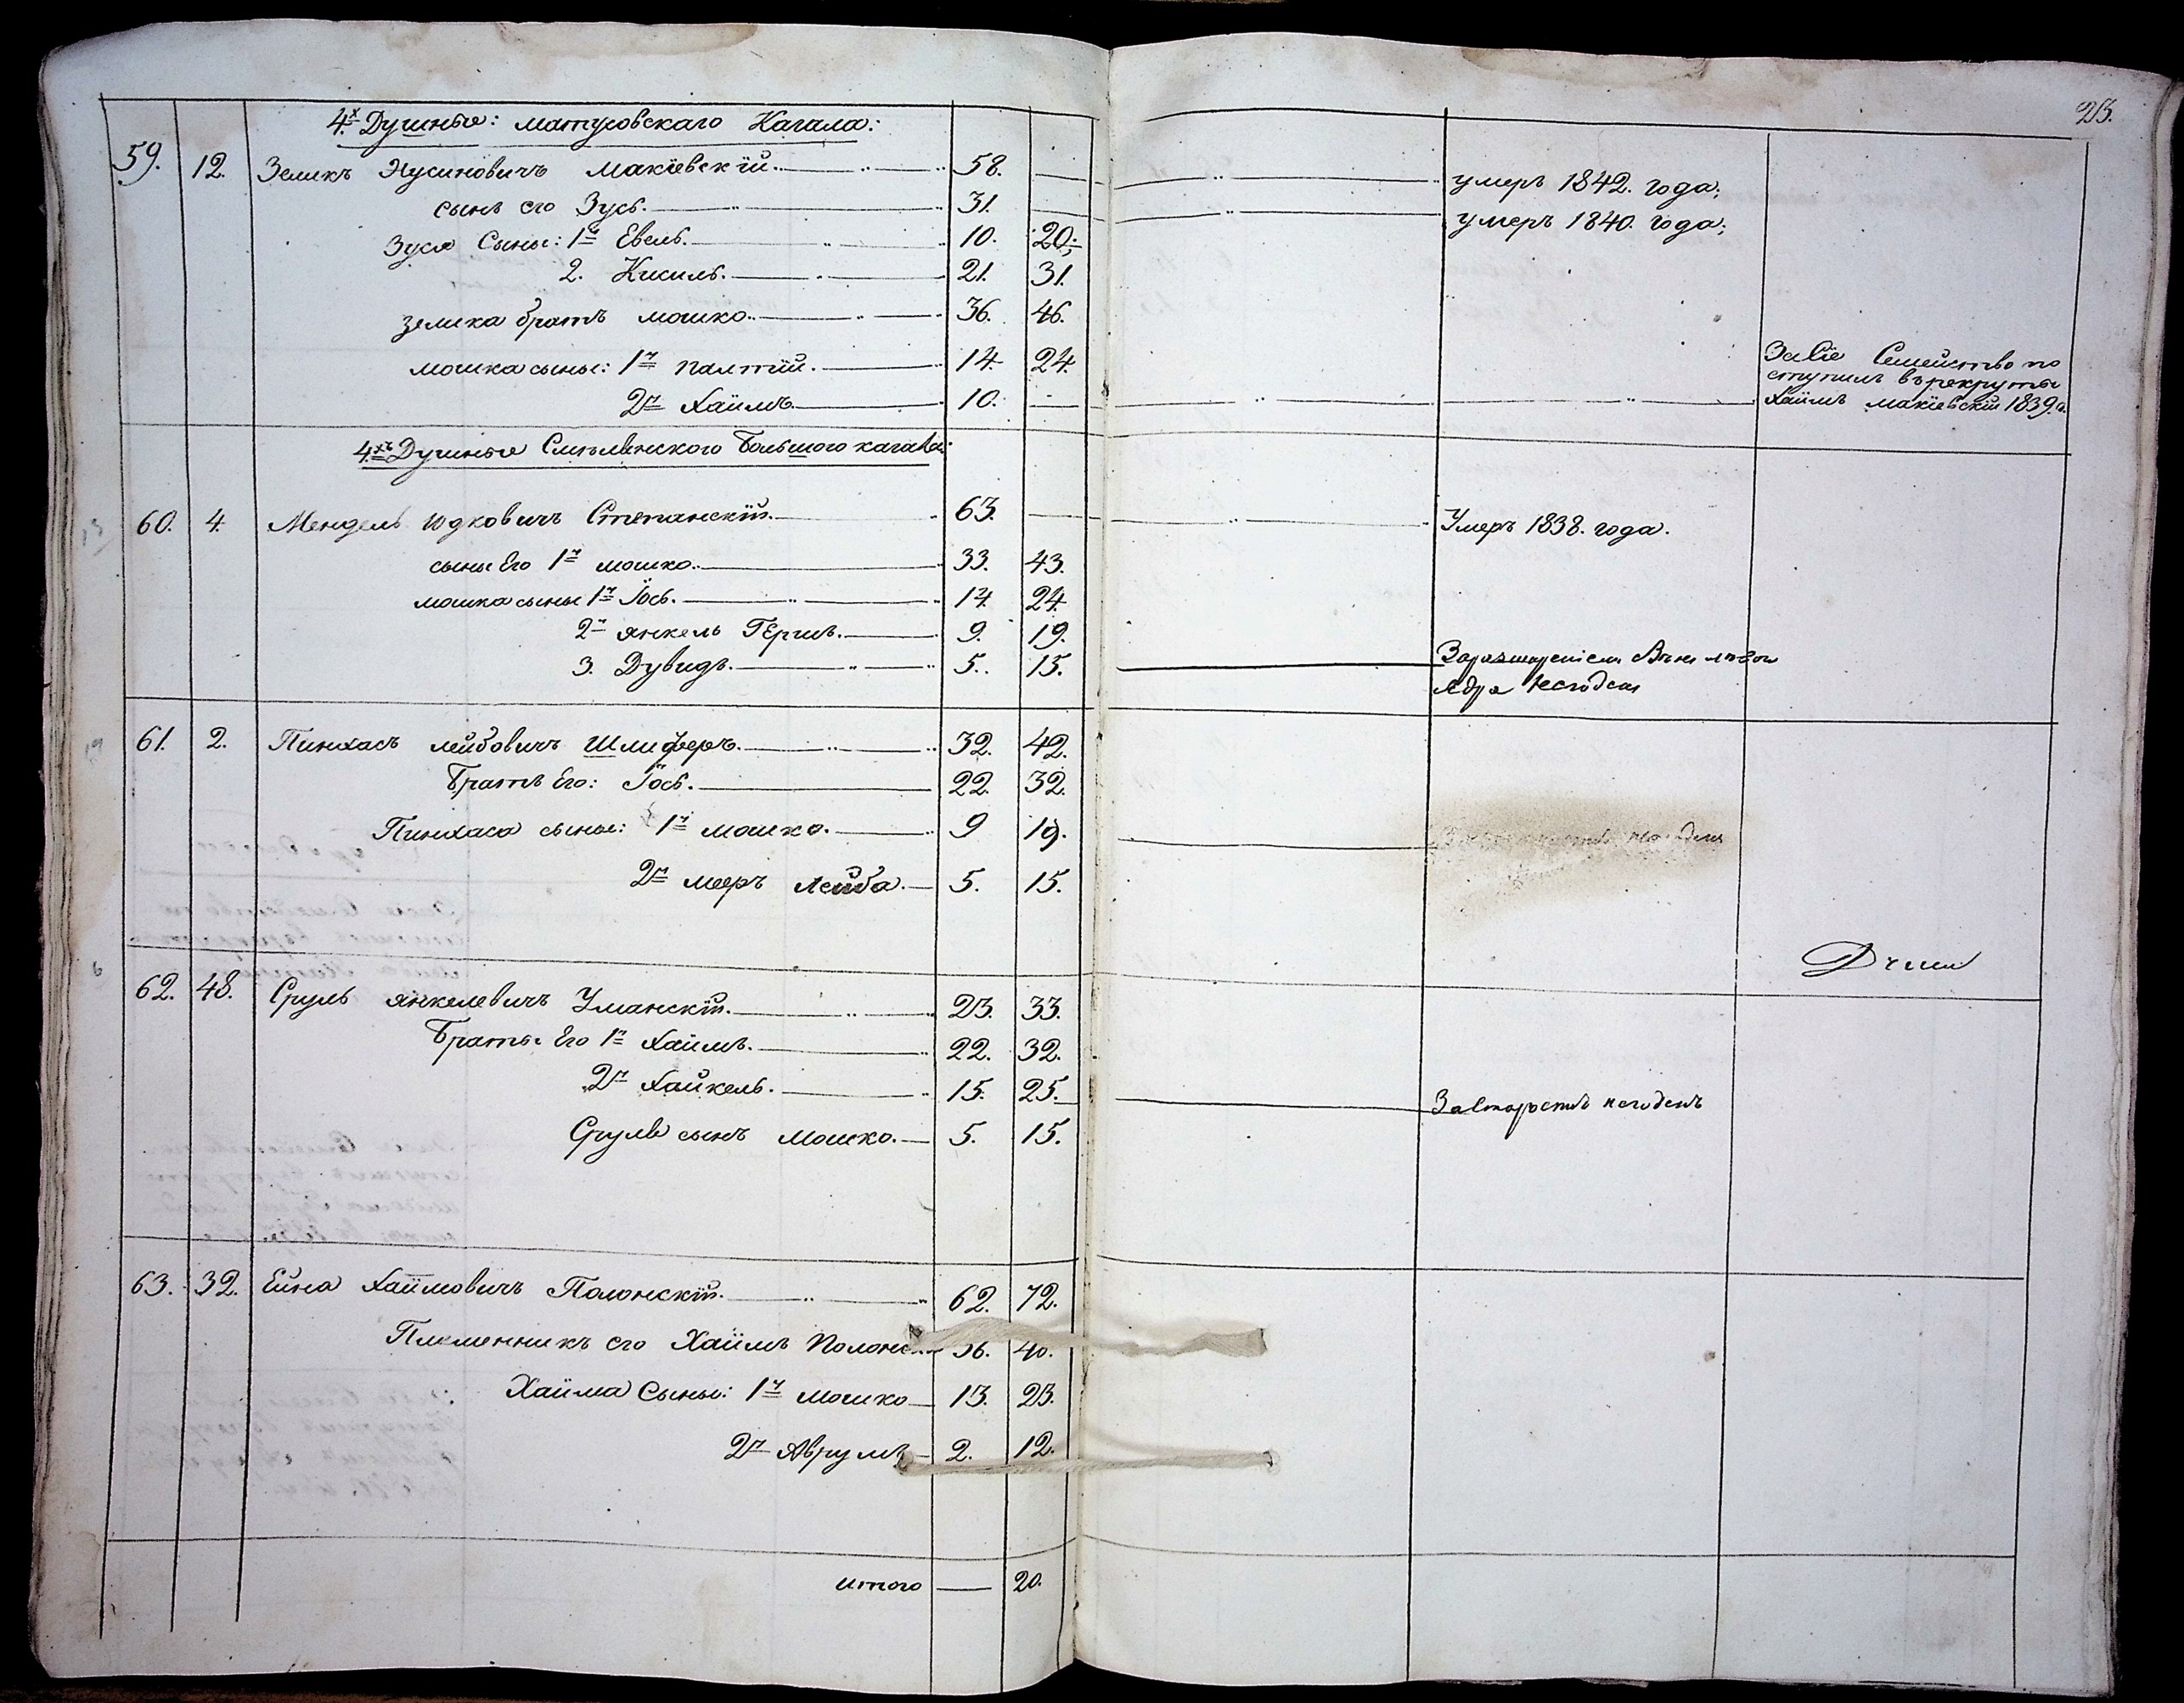 23.
4.х Душные: Матусовскаго Кагала:
59. 12. Зеликъ Нусиновичъ Макіевскій. 58. умеръ 1842. года;
сынъ его Зусь. 31. умеръ 1840. года;
Зуся Сыны: 1й Евель. 10. 20.
2. Кисиль. 21. 31.
Зелика братъ мошко. 36. 46.
мошка сыны: 1й Палтій. 14. 24.
За сіе Семейство по
ступилъ въ рекруты
2й Хаимъ. 10. Хаимъ Макіевскій 1839.г.
4.хъ Душные Смѣлянскаго Большого кагала:
60. 4. Мендель Юдковичъ Степанскій. 63. Умеръ 1838. года.
сыны Его 1й мошко. 33. 43.
мошка сыны 1й Іось. 14. 24.
2й янкель Гершъ. 9. 19.
3. Дувидъ. 5. 15.
ядра
61. 2. Пинхасъ лейбовичъ Шлиферъ. 32. 42.
Братъ Его: Іось. 22. 32.
Пинхаса сыны: 1й мошко. 9 19.
2й мееръ лейба. 5. 15.
62. 48. Сруль янкелевичъ Уманскій. 23. 33.
Браты Его 1й Хаимъ. 22. 32.
2й Хайкель. 15. 25. негоденъ
Сруля сынъ мошко. 5. 15.
63. 32. Ейна Хаймовичъ Полонскій. 62. 72.
Племенникъ его Хаимъ 36.
Хаима Сыны: 1й мошко 13. 23.
2й Аврумъ 2. 12.
итого 20.